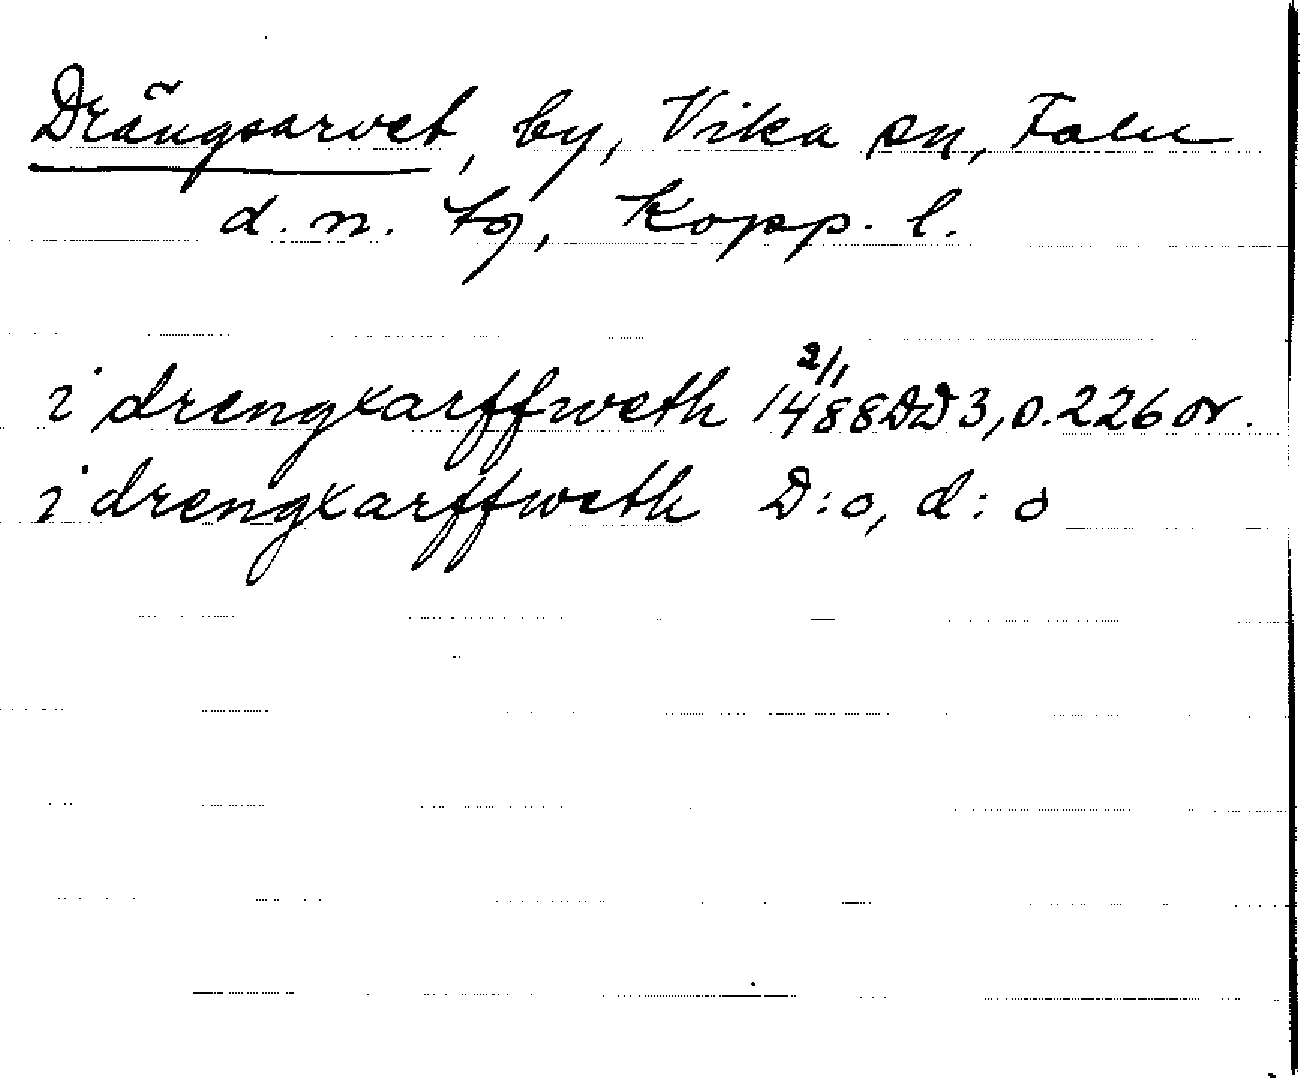 Drängsarvet, by, Vika sn, Falu
d. n. tg, Kopp. l.
i drengxarffweth 2/1 1488 DD 3, s. 226 or.
i drengxarffweth D:o, d:o